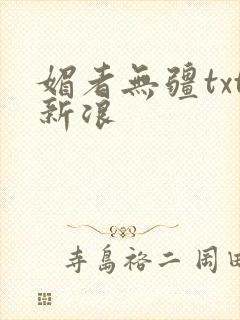 媚者無疆txt
新浪
寺島裕二 岡田